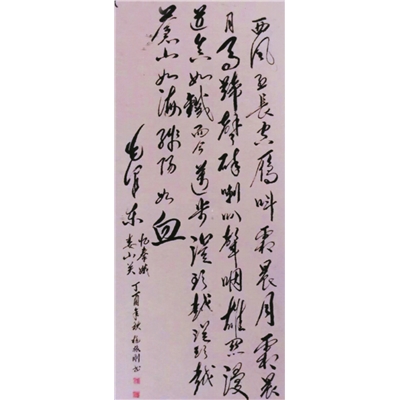 西风烈長空雁叫霜晨月霜晨
月马蹄聲碎喇叭聲咽雄关漫
道真如鐵而今邁步從头越從头越
蒼山如海残阳如血
毛泽东
忆秦娥
娄山关
丁酉 秋 书